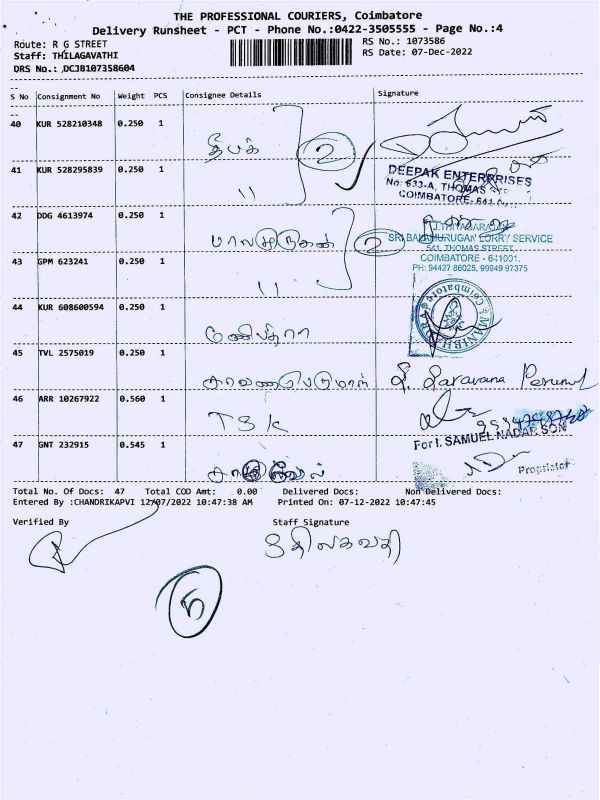 THE PROFESSIONAL COURIERS, Coimbatore
Delivery Runsheet - PCT - Phone No.:0422-3505555 - Page No.:4
Route: R G STREET RS No.: 1073586
Staff: THILAGAVATHI RS Date: 07-Dec-2022
DRS No.: DCJ8107358604
S No Consignment No Weight PCS Consignee Details Signature
40 KUR 528210348 0.250 1 தீபக் 2
41 KUR 528295839 0.250 1 11
DEEPAK ENTERPRISES
No: 633-A, THOMAS
COIMBATORE-641
42 DDG 4613974 0.250 1 பாலமுருகன் 2
SRI BALAMURUGAN LORRY SERVICE
541, THOMAS STREET
43 GPM 623241 0.250 1 11
COIMBATORE - 641001.
PH: 94427 86025, 99949 97375
44 KUR 608600594 0.250 1 மணிபத்ரா
MANIBHADRA Coimbatore
45 TVL 2575019 0.250 1 சரவணபெருமாள் S. Saravana Perumal
46 ARR 10267922 0.560 1 TSK
For I. SAMUEL NADAR SON
47 GNT 232915 0.545 1
Proprietor
Total No. Of Docs: 47 Total COD Amt: 0.00 Delivered Docs: Non Delivered Docs:
Entered By :CHANDRIKAPVI 12/07/2022 10:47:38 AM Printed On: 07-12-2022 10:47:45
Verified By Staff Signature
திலகவதி
5